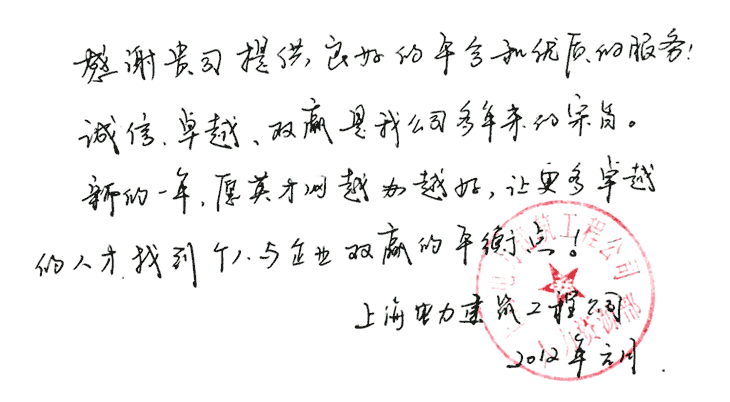 感谢贵司提供良好的平台和优质的服务!
诚信、卓越、双赢是我公司多年来的宗旨。
新的一年,愿英才网越办越好,让更多卓越
的人才找到个人与企业双赢的平衡点!
上海电力建筑工程公司
2012年元月.
电力建筑工程公司
人力资源部